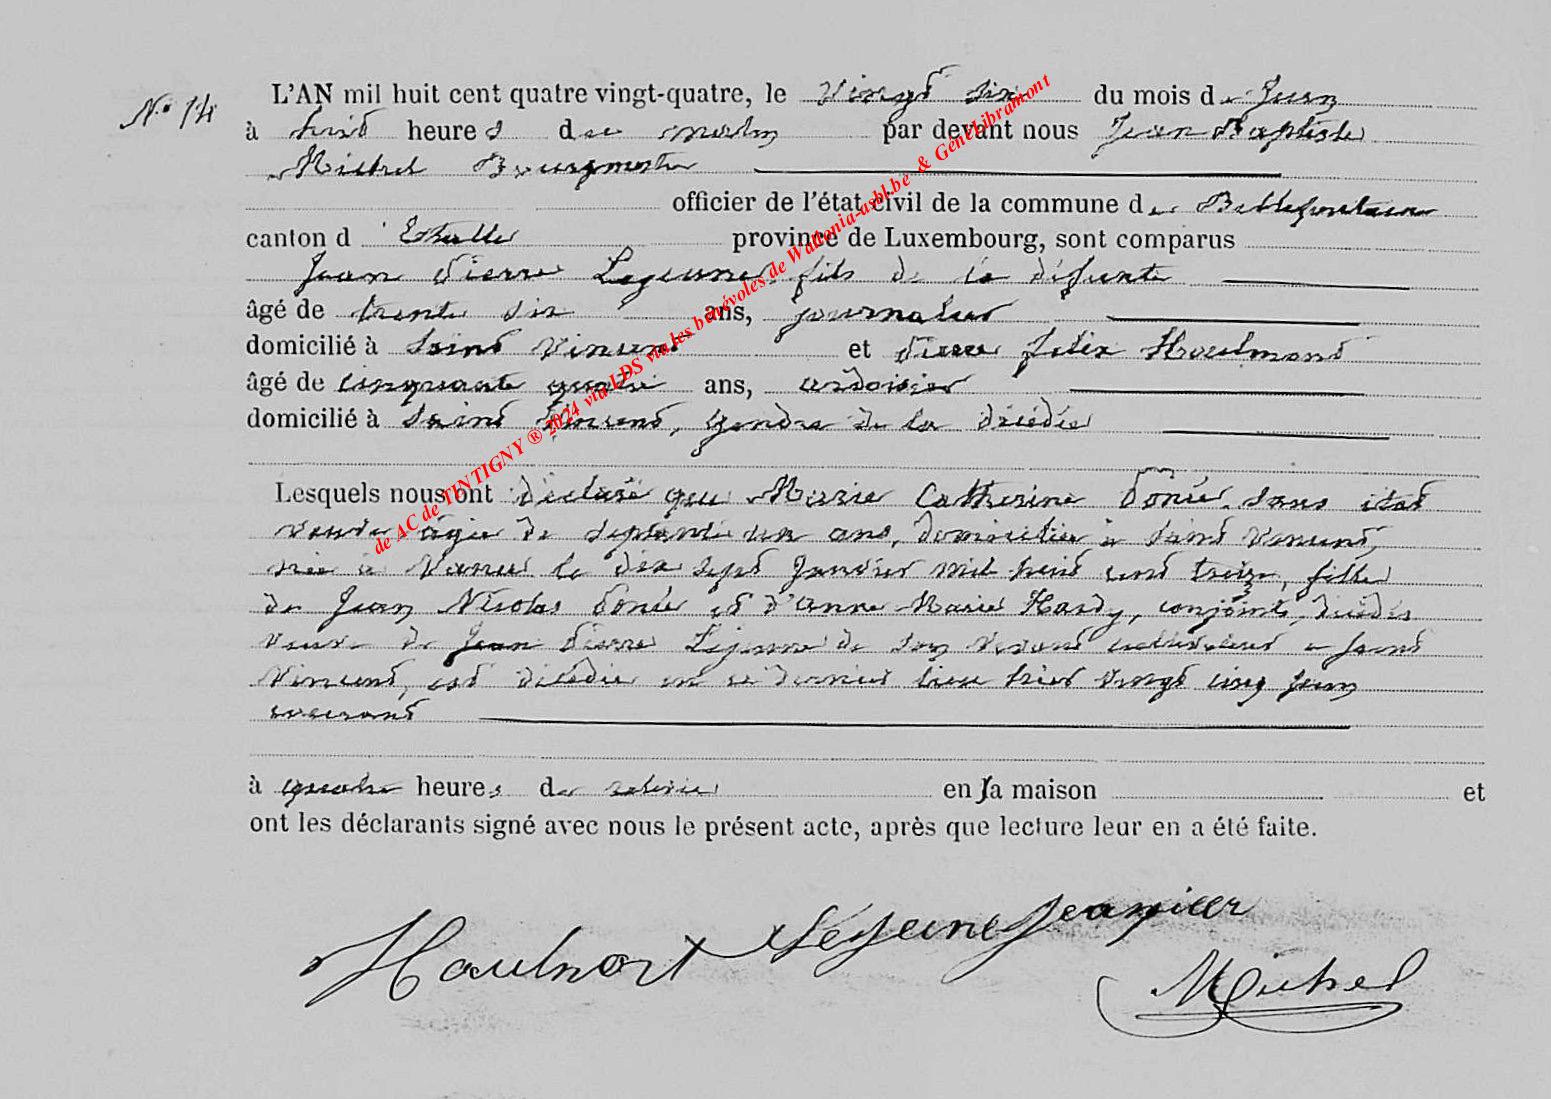 N° 14
L'AN mil huit cent quatre vingt-quatre, le vingt six du mois de Juin
à huit heures du matin par devant nous Jean Baptiste
Michel Bourgmestre
officier de l'état civil de la commune de Bellefontaine
canton d'Etalle province de Luxembourg, sont comparus
Jean Pierre Lejeune fils de la défunte
âgé de trente six ans, journalier
domicilié à Saint Vincent et Pierre felix
âgé de cinquante quatre ans, ardoisier
domicilié à Saint Vincent, gendre de la décédée
Lesquels nous ont déclaré que Marie Catherine sans état
veuve âgée de septante un ans, domiciliée à Saint Vincent,
née à le dix sept Janvier mil huit cent treize, fille
de Jean Nicolas et d'Anne Marie Hardy, conjoints, décédés
veuve de Jean Pierre Lejeune de son vivant cultivateur à Saint
Vincent, est décédée en ce dernier lieu hier vingt cinq Juin
courant
à quatre heures de relevée en sa maison et
ont les déclarants signé avec nous le présent acte, après que lecture leur en a été faite.
Lejeune Jeanpier
Michel
de AC de TINTIGNY ® 2024 via LDS via les bénévoles de Wallonia-asbl.be & GénéLibramont